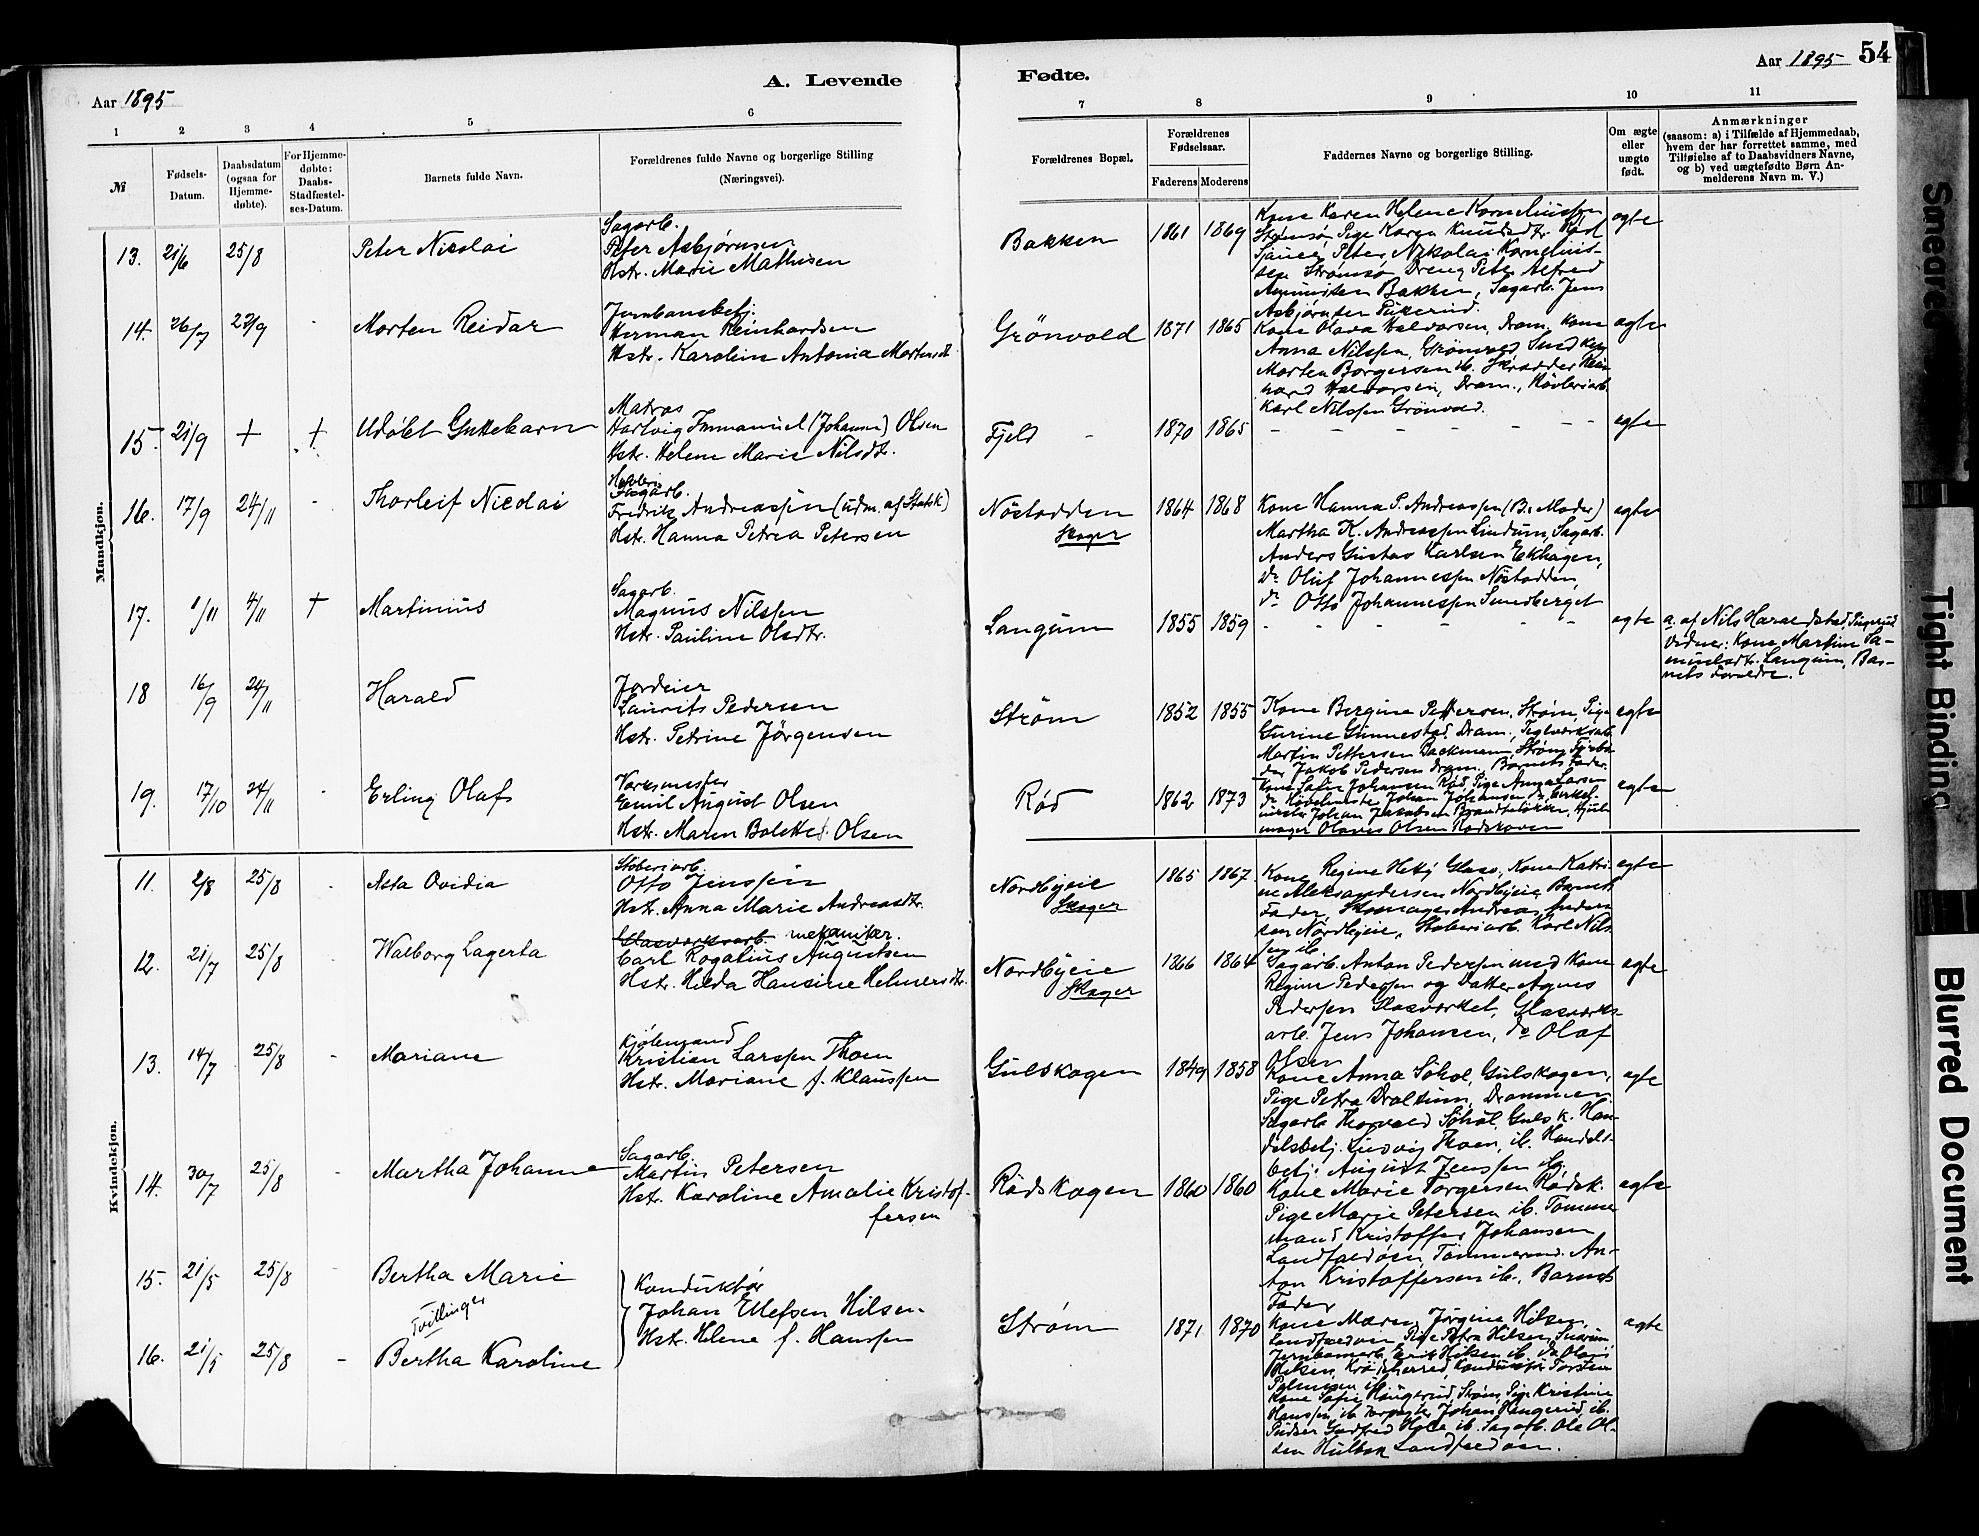 Aar 1895
A. Levende
Fødte.
Aar 1895
54
1 2 3 4 5 6 7 8 9 10 11
№
Fødsels-
Datum.
Daabsdatum
(ogsaa for
Hjemme-
døbte).
For Hjemme-
døbte:
Daabs-
Stadfæstel-
ses-Datum.
Barnets fulde Navn.
Forældrenes fulde Navne og borgerlige Stilling
(Næringsvei).
Forældrenes Bopæl.
Forældrenes
Fødselsaar.
Faderens Moderens
Faddernes Navne og borgerlige Stilling.
Om ægte
eller
uægte
født.
Anmærkninger
(saasom: a) i Tilfælde af Hjemmedaab,
hvem der har forrettet samme, med
Tilføielse af to Daabsvidners Navne,
og b) ved uægtefødte Børn An-
melderens Navn m. V.)
Mandkjøn.
13. 21/6 25/8 Peter Nicolai
Sagarb.
Peter Asbjørnsen
Hstr. Marie Mathisen
Bakken 1861 1869
Kone Karen Helene Kornelius
Strømsø, Pige Karen Knudsdtr.
Peter Nikolai Kornelius-
sen Strømsø, Dreng Peter Alfred
Bakken, Sagarb. Jens
Asbjørnsen
ægte
14. 26/7 29/9 - Morten Reidar
Jernbanebetj.
Herman Reinhardsen
Hstr. Karoline Antonia Mortensdt.
Grönvold 1871 1865
Kone Olava Halvorsen, Dram. Kone
Anna Nilssen, Grönvold,
Morten Borgersen ib. Skradder Rein-
hard Halvorsen, Dram., Høvleriarb.
Karl Nilssen Grönvold.
ægte
15. 21/9 + + Udøbt Guttebarn
Matros
Hartvig Immanuel (Johann) Olsen
Hstr. Helene Marie Nilsdtr.
Fjeld - 1870 1865 - - - - - - ægte
16. 17/9 24/11 - Thorleif Nicolai
Sagarb.
Fredrik Andreassen (udm. af Statsk)
Hstr. Hanna Petrea Petersen
Nöstodden
Skoger
1864 1868
Kone Hanna P. Andreassen (B. Moder)
Martha K. Andreassen Lindum, Sagarb.
Anders Gustav Karlsen Ekhagen,
do Oluf Johannessen Nöstodden,
do Otto Johannessen Smedberget
ægte
17. 1/11 4/11 + Martinius
Sagarb.
Magnus Nilssen
Hstr. Pauline Olsdtr.
Langum 1855 1859 - - - - - - ægte
a. af Nils Haraldstad,
Vidner: Kone Martine Sa-
muelsdtr. Langum, Bar-
nets Foreldre.
18 16/9 24/11 Harald
Jordeier
Laurits Pedersen
Hstr. Petrine Jörgensen
Strøm 1852 1855
Kone Bergine Pettersen, Strøm, Pige
Gurine Gunnestad, Dram., Teglværksarb.
Martin Pettersen Backmann, Strøm,
Jakob Pedersen Dram. Barnets Fader.
ægte
19. 17/10 24/11 - Erling Olaf
Værksmester
Emil August Olsen
Hstr. Maren Bolette Olsen
Rød 1862 1873
Kone Sofie Johansen Rød, Pige Anna Larsen
do Høvelmester Johan Johansen do
Johan Jakobsen Brandtsløkken,
Olaves Olsen
ægte
Kvindekjøn.
11. 2/8 25/8 - Asta Ovidia
Støberiarb.
Otto Jenssen
Hstr. Anna Marie Andreasdtr.
Nordbyeie
Skoger
1865 1867.
Kone Regine Glasv., Kone Katri-
ne Aleksandersen Nordbyeie, Barnets
Fader, Skomager Andreas Ander-
sen Nordbyeie, Støberiarb. Karl Nils-
sen ib.
ægte
12. 21/7 25/8 - Walborg Lagerta
Glasværksarb. mekaniker.
Carl Rogalius Augustsen
Hstr. Hilda Hansine Helmersdtr.
Nordbyeie
Skoger
1866 1864
Sagarb. Anton Pedersen med Kone
Regine Pedersen og Datter Agnes
Pedersen Glasværket, Glasværks-
arb. Jens Johansen, do Olaf
Olsen
ægte
13. 14/7 25/8 - Mariane
Kjøbmand
Kristian Larssen Thoen
Hstr. Mariane f. Klaussen
Gulskogen 1849 1858
Kone Anna Söhol, Gulskogen,
Pige Petra Drolsum, Drammen,
Sagarb. Thorvald Söhol, Gulsk. Han-
delsbetj. Ludvig Thoen, ib. Handels-
betj. August Jenssen
ægte
14. 30/7 25/8 - Martha Johanne
Sagarb.
Martin Petersen
Hst. Karoline Amalie Kristof-
fersen
Rödskogen 1860 1860
Kone Marie Torgersen Rödsk.
Pige Marie Petersen ib. Tömmer-
mand Kristoffer Johansen
Landfaldöen, Tömmermd. An-
ton Kristoffersen ib., Barnets
Fader
ægte
15. 21/5 25/8 - Bertha Marie
Tvillinger
16. 21/5 25/8 - Bertha Karoline
Konduktør
Johan Ellefsen Hilsen
Hstr. Helene f. Hanssen
Strøm 1871 1870
Kone Maren Jörgine Hilsen,
Landfaldöen, Pige Petra Hilsen,
Jernbanearb. Erik Hilsen ib. do Olaus
Hilsen, Konduktør Torsten
Kone Sofie Haugerud, Strøm, Pige Kristine
Hanssen ib. Johan Haugerud ib.
ib. Sagarb. Ole Ol-
sen Landfaldöen.
ægte
Smeared
Tight Binding
Blurred Document